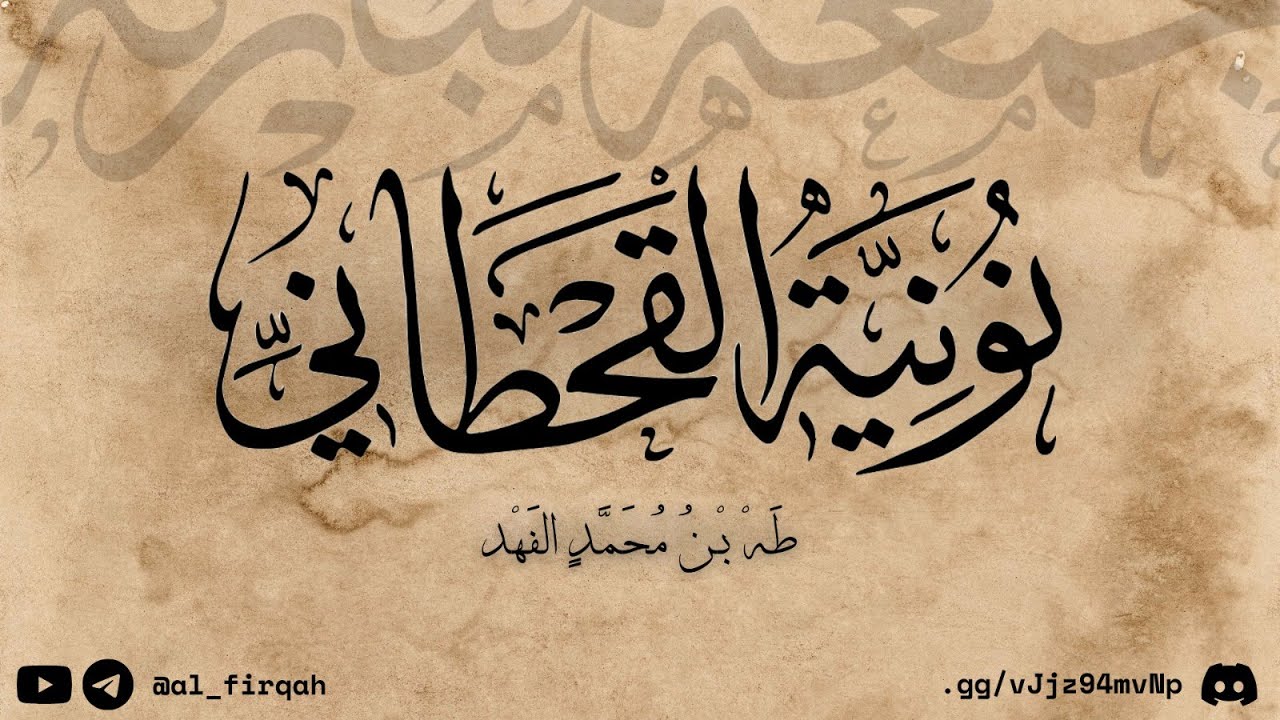 نُونِيَّةُ القَحْطَانِيِّ
طَهَ بْنُ مُحَمَّدٍ الفَهْد
@al_firqah
.gg/vJjz94mvNp